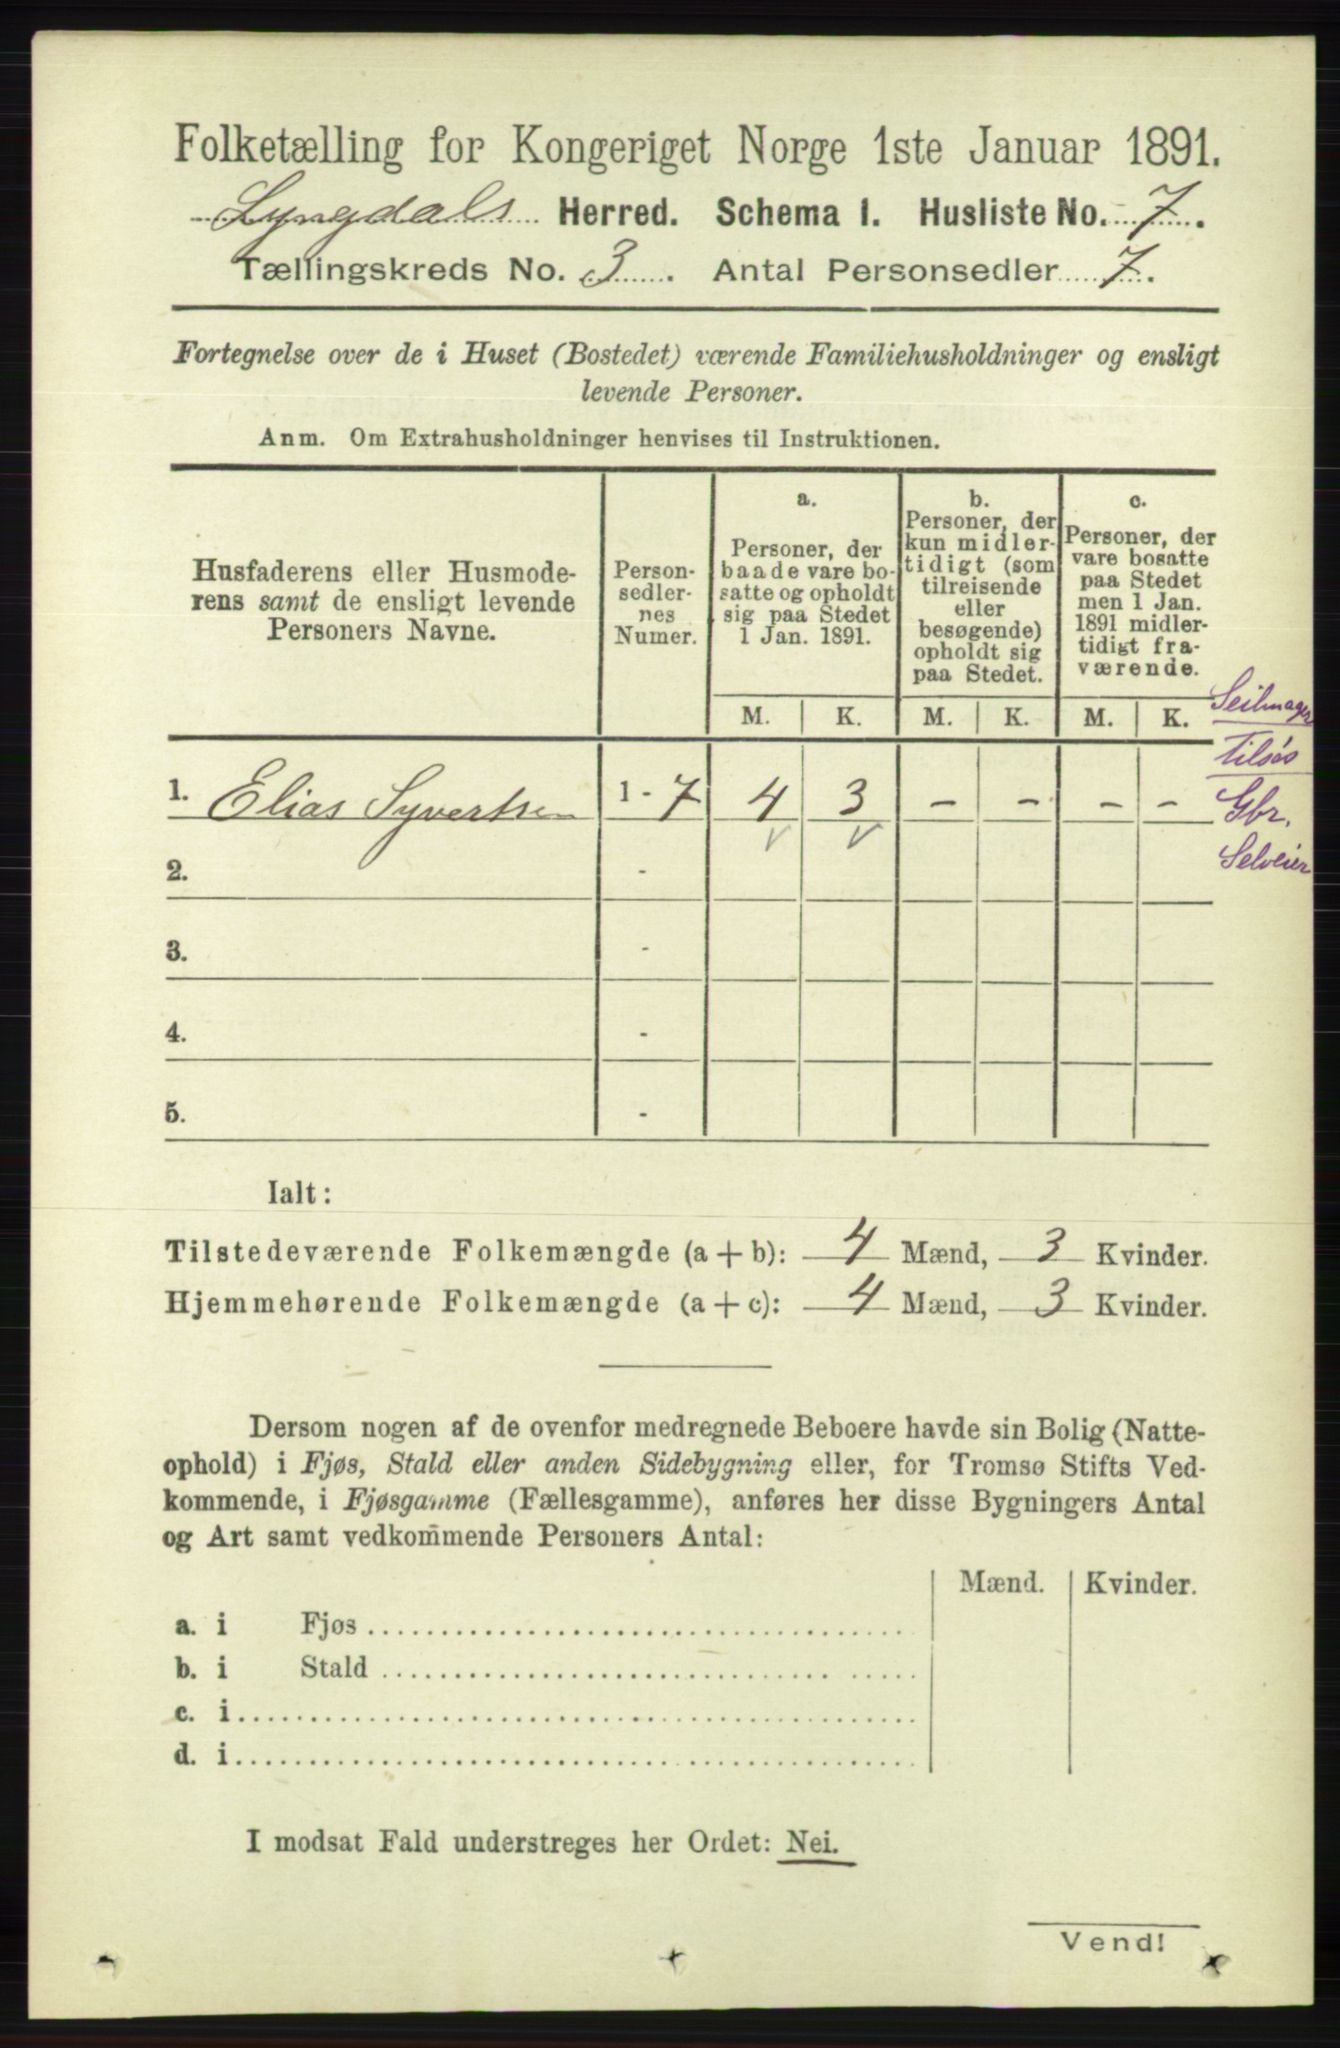 Folketælling for Kongeriget Norge 1ste Januar 1891.
Lyngdals Herred. Schema I. Husliste No. 7.
Tællingskreds No. 3. Antal Personsedler 7.
Fortegnelse over de i Huset (Bostedet) værende Familiehusholdninger og ensligt
levende Personer.
Anm. Om Extrahusholdninger henvises til Instruktionen.
Husfaderens eller Husmode-
rens samt de ensligt levende
Personers Navne.
Person-
sedler-
nes
Numer.
a.
Personer, der
baade vare bo-
satte og opholdt
sig paa Stedet
1 Jan. 1891.
b.
Personer, der
kun midler-
tidigt (som
tilreisende
eller
besøgende)
opholdt sig
paa Stedet.
c.
Personer, der
vare bosatte
paa Stedet
men 1 Jan.
1891 midler-
tidigt fra-
værende.
M. K. M. K. M. K.
Seilmager
tilsøs
Gbr.
Selveier
1. Elias Syvertsen 1 - 7 4 3 - - - -
2. -
3. -
4. -
5. -
Ialt:
Tilstedeværende Folkemængde (a + b): 4 Mænd, 3 Kvinder.
Hjemmehørende Folkemængde (a + c): 4 Mænd, 3 Kvinder.
Dersom nogen af de ovenfor medregnede Beboere havde sin Bolig (Natte-
ophold) i Fjøs, Stald eller anden Sidebygning eller, for Tromsø Stifts Ved-
kommende, i Fjøsgamme (Fællesgamme), anføres her disse Bygningers Antal
og Art samt vedkom̄mende Personers Antal:
Mænd. Kvinder.
a. i Fjøs
b. i Stald
c. i
d. i
I modsat Fald understreges her Ordet: Nei.
Vend!